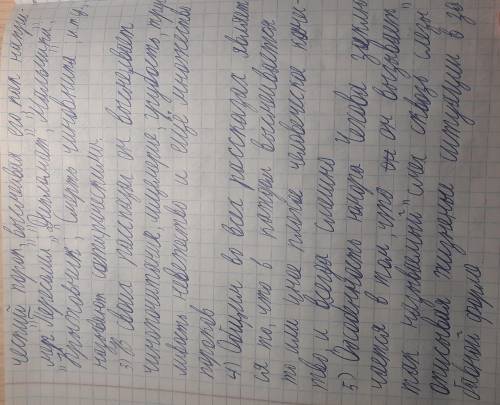 честий перо, высмеивая его как напри
мер "Пересолил", "Дипломат", "Мальчики",
"Крыжовник", "Смерть чиновника" и т.д.
называют сатирическими.
3) В своих рассказах он высмеивает
чинопочитание, лицемерие, грубость, тру
сливость, невежество и ещё множество
пороков
4) Общим во всех рассказах являет
ся то, что в каждом высмеивается
то или иное плохое человеческое каче-
ство и всегда смешно
5) Особенность юмора Чехова заклю
чается в том, что он вызывает
так называемый "смех сквозь слёзы"
описывая жизненные ситуации в за
бавной форме